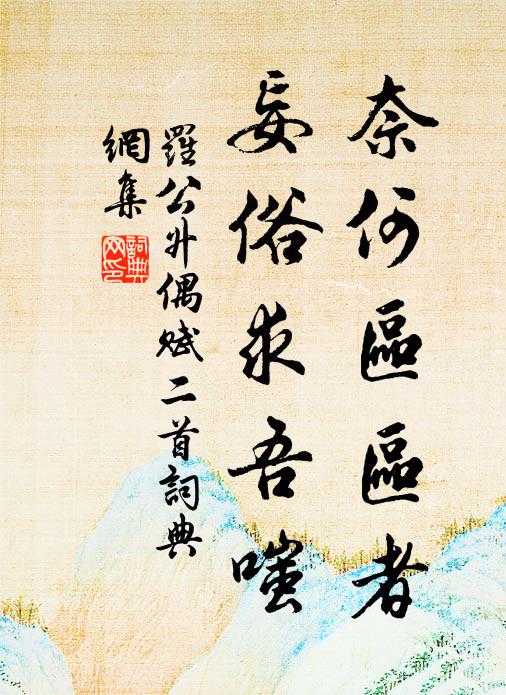 奈何區區者
妄俗求吾嗤
羅公升偶賦二首詞典
網集
詞典
网印